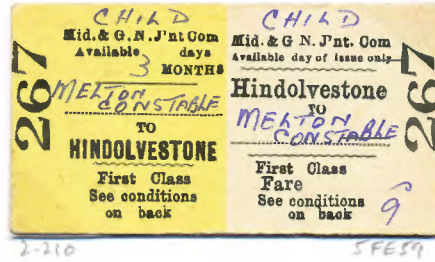 CHILD
Mid. & G. N. J'nt Com
Available days
3 MONTHS
MELTON
CONSTABLE
TO
HINDOLVESTONE
First Class
See conditions
on back
267
CHILD
Mid. & G N. J'nt. Com
Available day of issue only
Hindolvestone
TO
MELTON
CONSTABLE
First Class
Fare
See conditions
on back
9
267
2-210
5FE59